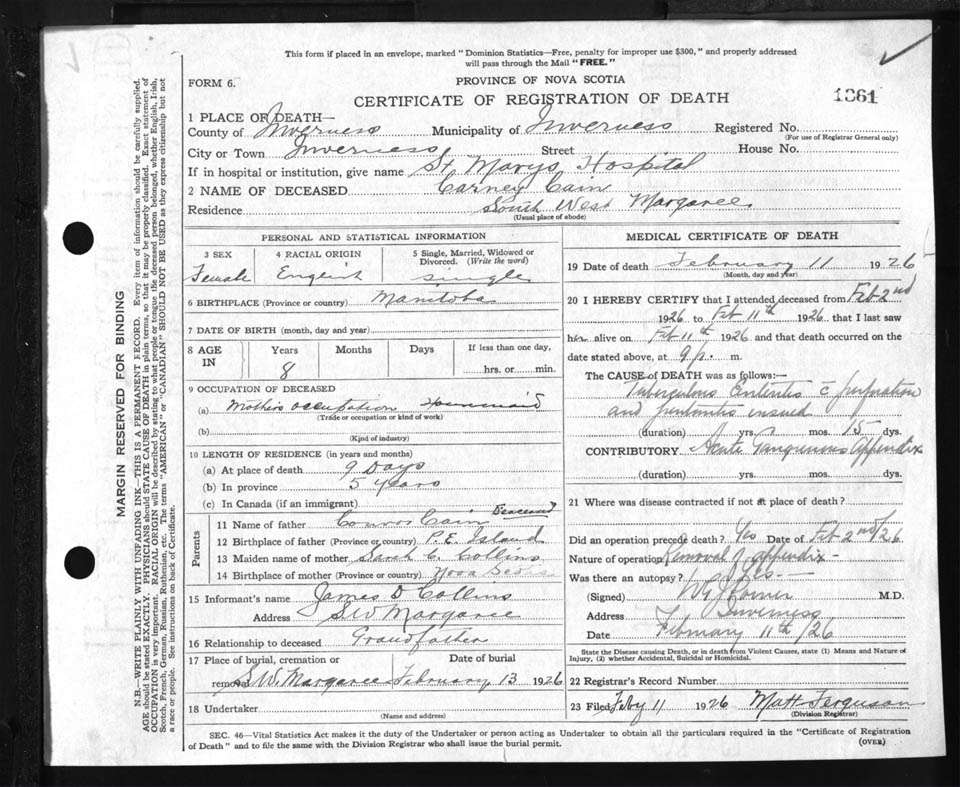 This form if placed in an envelope, marked "Dominion Statistics—Free, penalty for improper use $300," and properly addressed
will pass through the Mail "FREE."
FORM 6.
PROVINCE OF NOVA SCOTIA
CERTIFICATE OF REGISTRATION OF DEATH
1361
1 PLACE OF DEATH—
County of Inverness Municipality of Inverness Registered No.
(For use of Registrar General only)
City or Town Inverness Street House No.
If in hospital or institution, give name St Marys Hospital
2 NAME OF DECEASED Carney Cain
Residence South West Margaree
(Usual place of abode)
PERSONAL AND STATISTICAL INFORMATION
3 SEX 4 RACIAL ORIGIN 5 Single, Married, Widowed or
Divorced. (Write the word)
Female English Single
6 BIRTHPLACE (Province or country) Manitoba
7 DATE OF BIRTH (month, day and year)
8 AGE IN Years Months Days If less than one day,
8 hrs. or min.
9 OCCUPATION OF DECEASED
(a) Mother's occupation Housemaid
(Trade or occupation or kind of work)
(b)
(Kind of industry)
10 LENGTH OF RESIDENCE (in years and months)
(a) At place of death 9 Days
(b) In province 5 years
(c) In Canada (if an immigrant)
Parents
11 Name of father Cain Deceased
12 Birthplace of father (Province or country) P.E. Island
13 Maiden name of mother Sarah C. Collins
14 Birthplace of mother (Province or country) Nova Scotia
15 Informant's name James D Collins
Address S W Margaree
16 Relationship to deceased Grandfather
17 Place of burial, cremation or Date of burial
removal S.W. Margaree February 13 1926
18 Undertaker
(Name and address)
MEDICAL CERTIFICATE OF DEATH
19 Date of death February 11 1926
(Month, day and year)
20 I HEREBY CERTIFY that I attended deceased from Feb 2nd
1926 to Feb 11th 1926 that I last saw
her alive on Feb 11th 1926 and that death occurred on the
date stated above, at 9 p. m.
The CAUSE OF DEATH was as follows:—
Tuberculous Enteritis c perforation
and peritonitis ensued
(duration) yrs. mos. 15 dys.
CONTRIBUTORY Acute Gangrenous Appendix
(duration) yrs. mos. dys.
21 Where was disease contracted if not at place of death?
Did an operation precede death? Yes Date of Feb 2nd/26
Nature of operation Removal of appendix
Was there an autopsy? Yes
(Signed) M.D.
Address Inverness
Date February 11th /26
State the Disease causing Death, or in death from Violent Causes, state (1) Means and Nature of
Injury, (2) whether Accidental, Suicidal or Homicidal.
22 Registrar's Record Number
23 Filed Feby 11 1926 Matt Ferguson
(Division Registrar)
SEC. 46—Vital Statistics Act makes it the duty of the Undertaker or person acting as Undertaker to obtain all the particulars required in the "Certificate of Registration
of Death" and to file the same with the Division Registrar who shall issue the burial permit.
(OVER)
MARGIN RESERVED FOR BINDING
N.B.—WRITE PLAINLY WITH UNFADING INK—THIS IS A PERMANENT RECORD. Every item of information should be carefully supplied.
AGE should be stated EXACTLY. PHYSICIANS should STATE CAUSE OF DEATH in plain terms, so that it may be properly classified. Exact statement of
OCCUPATION is very important. RACIAL ORIGIN will be described by stating to what people or tongue the deceased person belonged, whether English, Irish,
Scotch, French, German, Russian, Ruthenian, etc. The terms "AMERICAN" or "CANADIAN" SHOULD NOT BE USED as they express citizenship but not
a race or people. See instructions on back of Certificate.